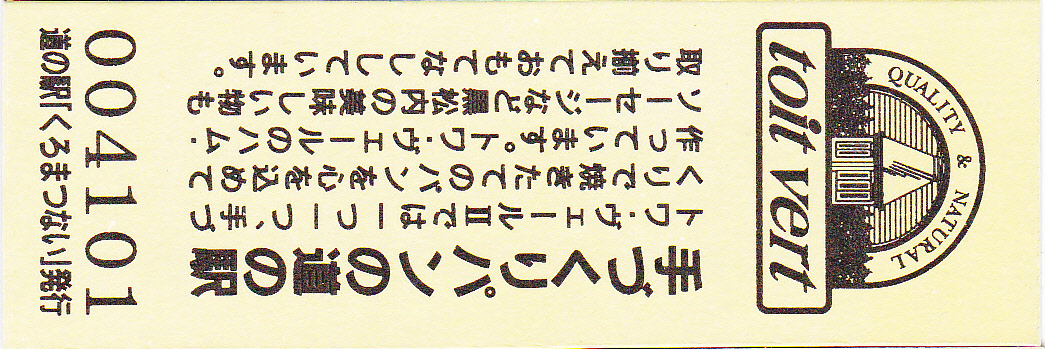 QUALITY & NATURAL
toit vert
手づくりパンの道の駅
トワ・ヴェールⅡでは一つ一つ、手づ
くりで焼きたてのパンを心を込めて
作っています。トワ・ヴェールのハム・
ソーセージなど黒松内の美味しい物も
取り揃えておもてなししています。
004101
道の駅「くろまつない」発行